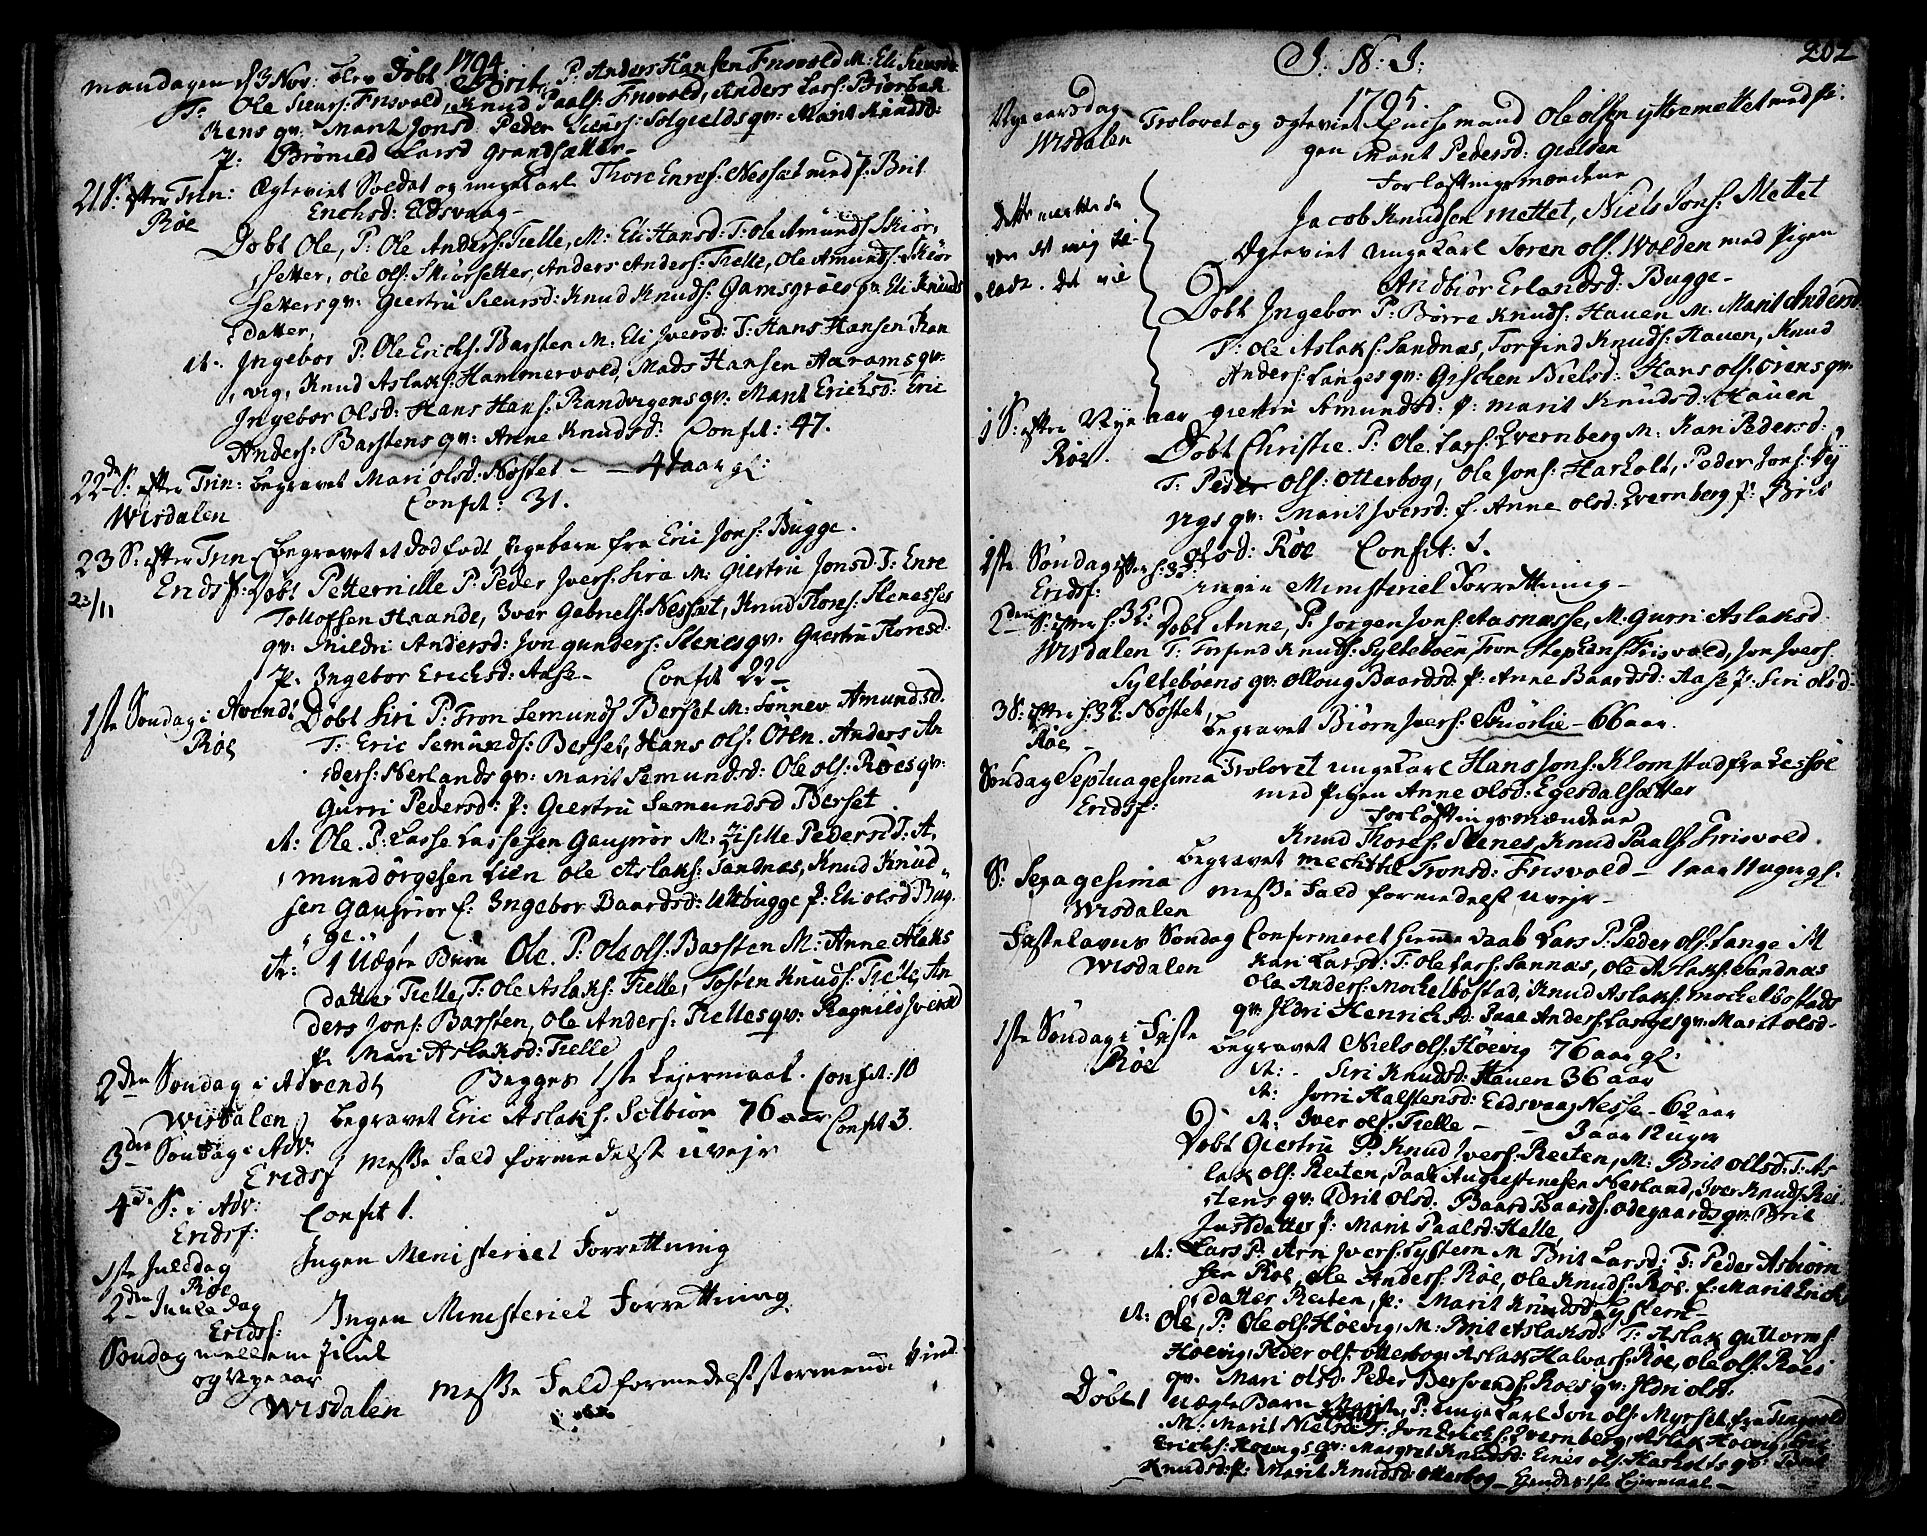 1794.
Mandagen d 3 Nov: blev Døbt Brit, P: Anders Hansen Frisvold M: Eli Siursd:
T: Ole Siurs: Frisvold, Knud Paals: Frisvold, Anders Lars: Biørbak
Kens qv: Marit Jonsd: Peder Siurs: Solgields qv: Marit Knudsd:
p: Brønild Larsd
21 S: efter Trin: Ægteviet Soldat og ungekarl Thore Enres: Nesset med p: Brit
Røe Erichsd: Eidsvaag
Døbt Ole, P: Ole Anders: Tielle, M: Eli Hansd: T: Ole Amunds: Skiør,
setter, Ole Ols: Skiørsetter, Anders Anders: Tielle, Ole Amunds: Skiør
setters qv: Giertru Siursd: Knud Knuds: Gamsgrøes p: Eli Knuds
datter,
it: Ingebor P: Ole Erichs: Barsten M: Eli Iversd: T: Hans Hansen Ran
vig, Knud Aslaks: Hammervold, Mads Hansen Aarams qv:
Ingebor Olsd: Hans Hans: Randvigens qv: Marit Erichsd: Eric
Anders: Barstens qv: Anne Knudsd: Confit: 47.
22de S: efter Trin: begravet Mari Olsd: Nøstet - - 41 aar gl:
Wisdalen Confit: 31.
23 S: efter Trin: begravet et dødfødt Pigebarn fra Eric Jons: Bugge.
23/11 Eridsf: Døbt Petternille P: Peder Ivers: Sira M: Giertru Jonsd: T: Enre
Tollofsen Haande, Iver Gabriels: Nesset, Knud Thores: Stenesses
qv: Andersd: Jon Gunders: Stenes qv: Giertru Thoresd:
p: Ingebor Erichsd: Aase - Confit 22 -
1ste Søndag i Avendt Døbt Siri P: Tron Semunds Berset M: Sønnev Amundsd:
Røe T: Eric Semunds: Berset, Hans Ols: Øren. Anders An
ders: Nerlands qv: Marit Semundsd: Ole Ols: Røes qv:
Gurri Pedersd: p: Giertru Semundsd Berset.
it: Ole. P: Lasse Lassesen Gausrør M: Zissille Pedersd T: A,
mund Lien Ole Aslaks: Sandnas, Knud Knud,,
sen Gausrør f: Ingebor Baardsd: Utbugge p: Eli Olsd Bug,
ge..
it: 1 Uægte Barn Ole. P: Ole Ols: Barsten M: Anne Aslaks
datter Tielle, T: Ole Aslaks: Tielle, Knuds: Tielle, An
ders Jons: Barsten, Ole Anders: Tielles qv: Ragnild
p: Mari Aslaksd: Tielle
2den Søndag i Advendt Begges 1ste Lejermaal. Confit: 10
Wisdalen begravet Eric Aslaks: Selbiør 76 aar Confit 3.
3die Søndag i Adv: Messe Fald formedelst uvejr
Eridsf
4de S: i Adv: Confit 1.
Eridsf:
1ste Juledag Ingen Ministeriel Forrettning
Røe
2den Juule dag Ingen Ministeriel Forrettning
Eridsf:
Søndag mellem Juul
og Nyeaar Messe Fald formedelst stormende Vind
Wisdalen
202
I: N: I:
1795.
Nye aarsdag Trolovet og Ægteviet Enchemand Ole Olsen yttremettet med pi:
Wisdalen gen Marit Pedersd: Gielden
Forløftningsmændene
Jacob Knudsen Mettet, Niels Jons: Mettet
Ægteviet Ungekarl Søren Ols: Wolden med Pigen
Andbiør Erlandsd: Bugge -
Døbt Ingebor P: Børre Knuds: Hauen M: Marit Andersd:
T: Ole Aslaks: Sandnas, Torfind Knuds: Hauen, Knud
Anders: Langes qv: Gischen Nielsd: Hans Ols: Ørens qv:
Giertru Amundsd: p: Marit Knudsd: Hauen
1 S: efter Nye aar Døbt Christie P: Ole Lars: Evernberg M: Kari Pedersd:
Røe. T: Peder Ols: Otterbog, Ole Jons: Harholt, Peder Jons:
qv: Marit Iversd: f: Anne Olsd: Evernberg p: Brit
Olsd: Røe Confit: 1.
1ste Søndag efter h: 3K:
Eridsf: ingen Ministeriel Forrettning -
2den S: efter h: 3K: Døbt Anne, P: Jorgen Jons: Aasnasse, M: Gurri Aslaksd:
Wisdalen T: Torfind Knuds: Syltebøen, Tron Stephans: Frisvold, Jon Ivers:
Syltebøens qv: Olloug Baardsd: p: Anne Baardsd: Aase p: Siri Olsd:
Nøstet,
3 S: efter h: 3K: begravet Biørn Ivers: - 66 aar.
Røe
Søndag Septuagesima Trolovet ungekarl Hans Jons: Klomstad fra Lessøe
Eridsf: med Pigen Anne Olsd: Egesdalsætter
Forløftningsmændene
Knud Thores: Stenes, Knud Paals: Frisvold.
begravet Mechthel Tronsd: Frisvold - 1 aar 11 uger gl:
S: Sexagesima Messe Fald formedelst uvejr -
Wisdalen
Fastelavns Søndag Confirmeret hiemme daab Lars P: Peder Ols: Lange M
Wisdalen Kari Larsd: T: Ole Lars: Sannas, Ole Aslaks: Sandnas
Ole Anders: Mochelbostad, Knud Aslaks: Mochelbostads
qv: Ildri Henrichsd: Anders: Langes qv: Marit Olsd -
1ste Søndag i Faste begravet Niels Ols: Høevig 76 aar gl:
Røe it: - Siri Knudsd: Hauen 36 aar
it: Jorri Halstensd: Eidsvaag Nesse - 62 aar
it: Iver Ols: Tielle - - 3 aar 12 uger
Døbt Giertru P: Knud Ivers: Reiten, M: Brit Olsd: T: As
lak Ols: Reiten, Paal Augustinesen Nerland, Iver Knuds: Rei
tens qv: Brit Olsd: Baard Baards: Ødegaards qv: Brit
Justdatter p: Marit Paalsd: Helle
it: Lars P: Arn Ivers: Lystern M: Brit Larsd: T: Peder Asbiørn
sen Røe, Ole Anders: Røe, Ole Knuds: Røe. f: Marit Erichs
datter Reiten, p: Marit Knudsd: Lystern
it: Ole, P: Ole Ols: Høevig, M: Brit Aslaksd: T: Aslak Guttorms:
Høevig, Peder Ols: Otterbog, Aslak Halvars: Røe, Ole Ols: Røes
qv: Mari Olsd: Peder Røes qv: Ildri Olsd.
Døbt 1 Uægte Barn Marit, P: Ungekarl Jon Ols: Myrset fra Tingvold
M: Marit Nielsd: T: Jon Erichs: Evernberg, Aslak Høevig,
Erichs: Høevigs qv: Margret Knudsd: Einer Ols: Harholts qv: Brit
Knudsd: p: Marit Knudsd: Otterbog - Hendes 1ste Lejermaal -